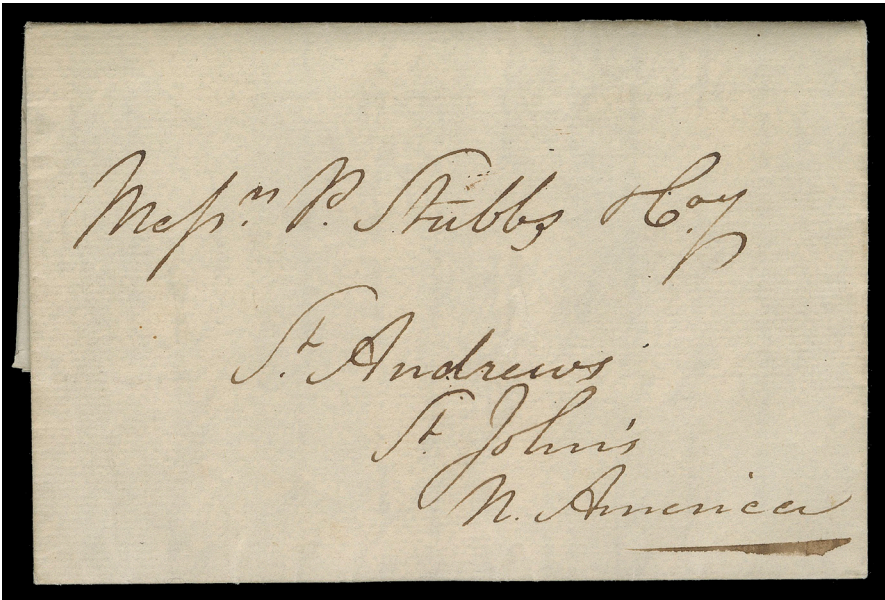 Messrs. P. Stubbs & Coy
St. Andrews
St. John's
N. America